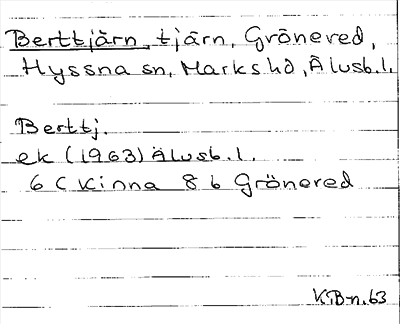 Berttjärn, tjärn, Grönered,
Hyssna sn, Marks hd, Älvsb.l.
Berttj.
ek (1963) Älvsb.l.
6 C Kinna 8 b Grönered
KTB-n.63